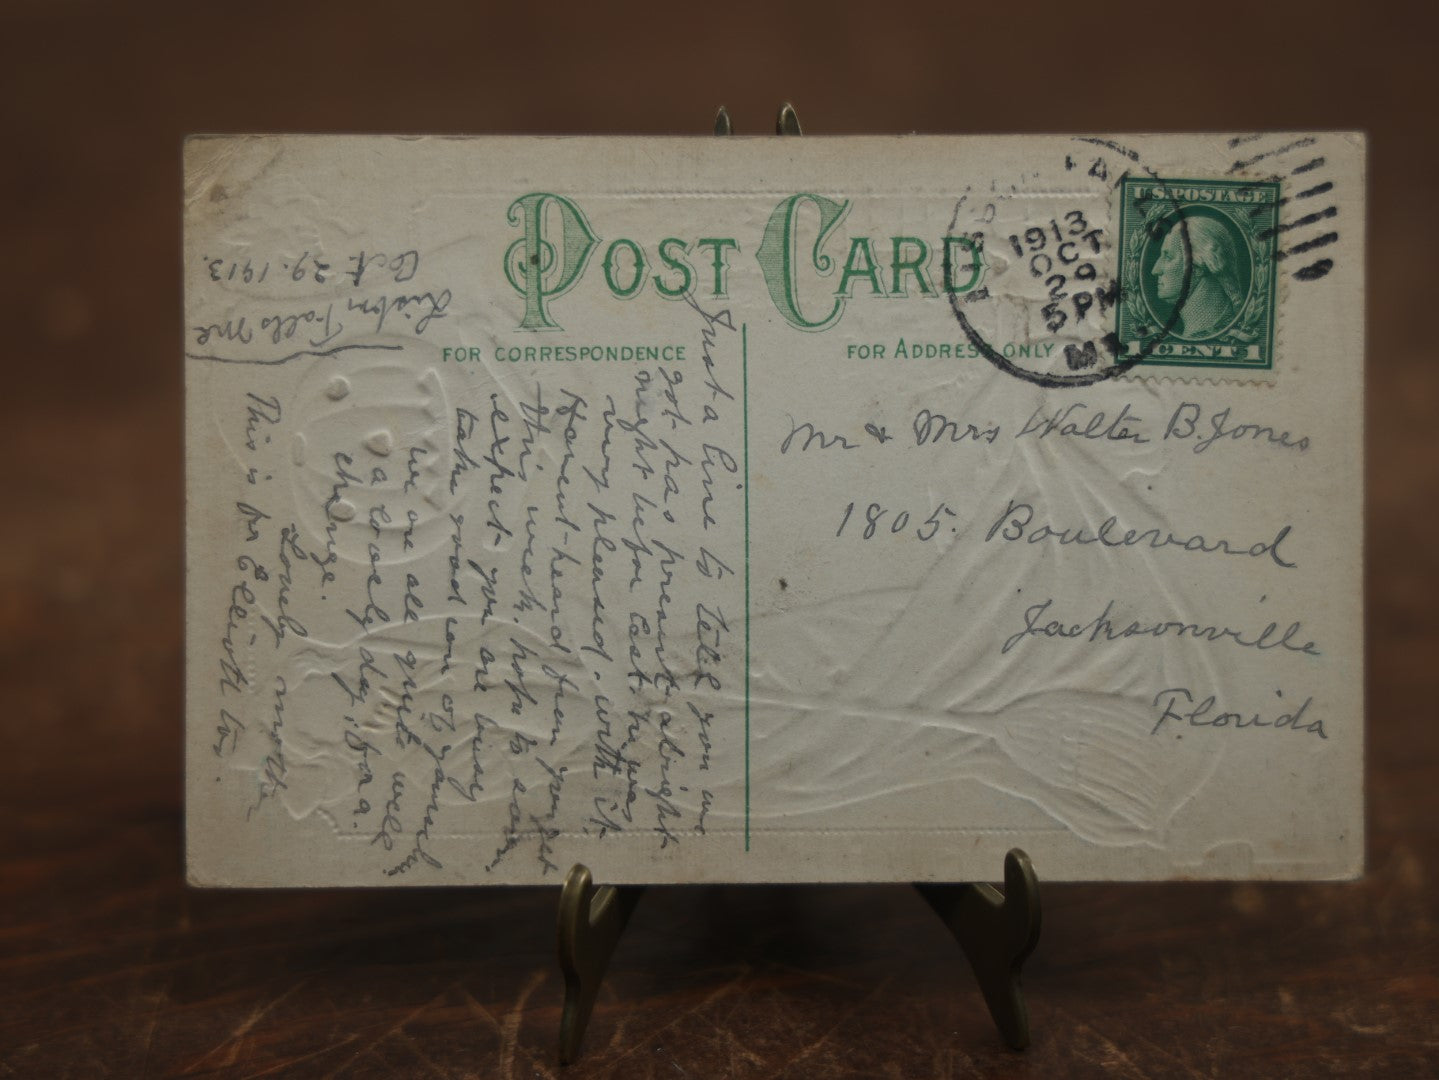 POST CARD
FOR CORRESPONDENCE
FOR ADDRESS ONLY
FALLS
1913
OCT
29
5 PM
ME.
U.S. POSTAGE
1 CENT 1
Lisbon Falls Me
Oct. 29. 1913.
Just a line to tell you we
got his present alright
night before last. he was
very pleased. with it.
Havent heard from you yet
this week. hope to soon.
expect you are busy
take good care of yourself
we are all quite well
a lovely day. for a
change.
Lovely mother
This is for Elliott too.
Mr & Mrs Walter B. Jones
1805. Boulevard
Jacksonville
Florida